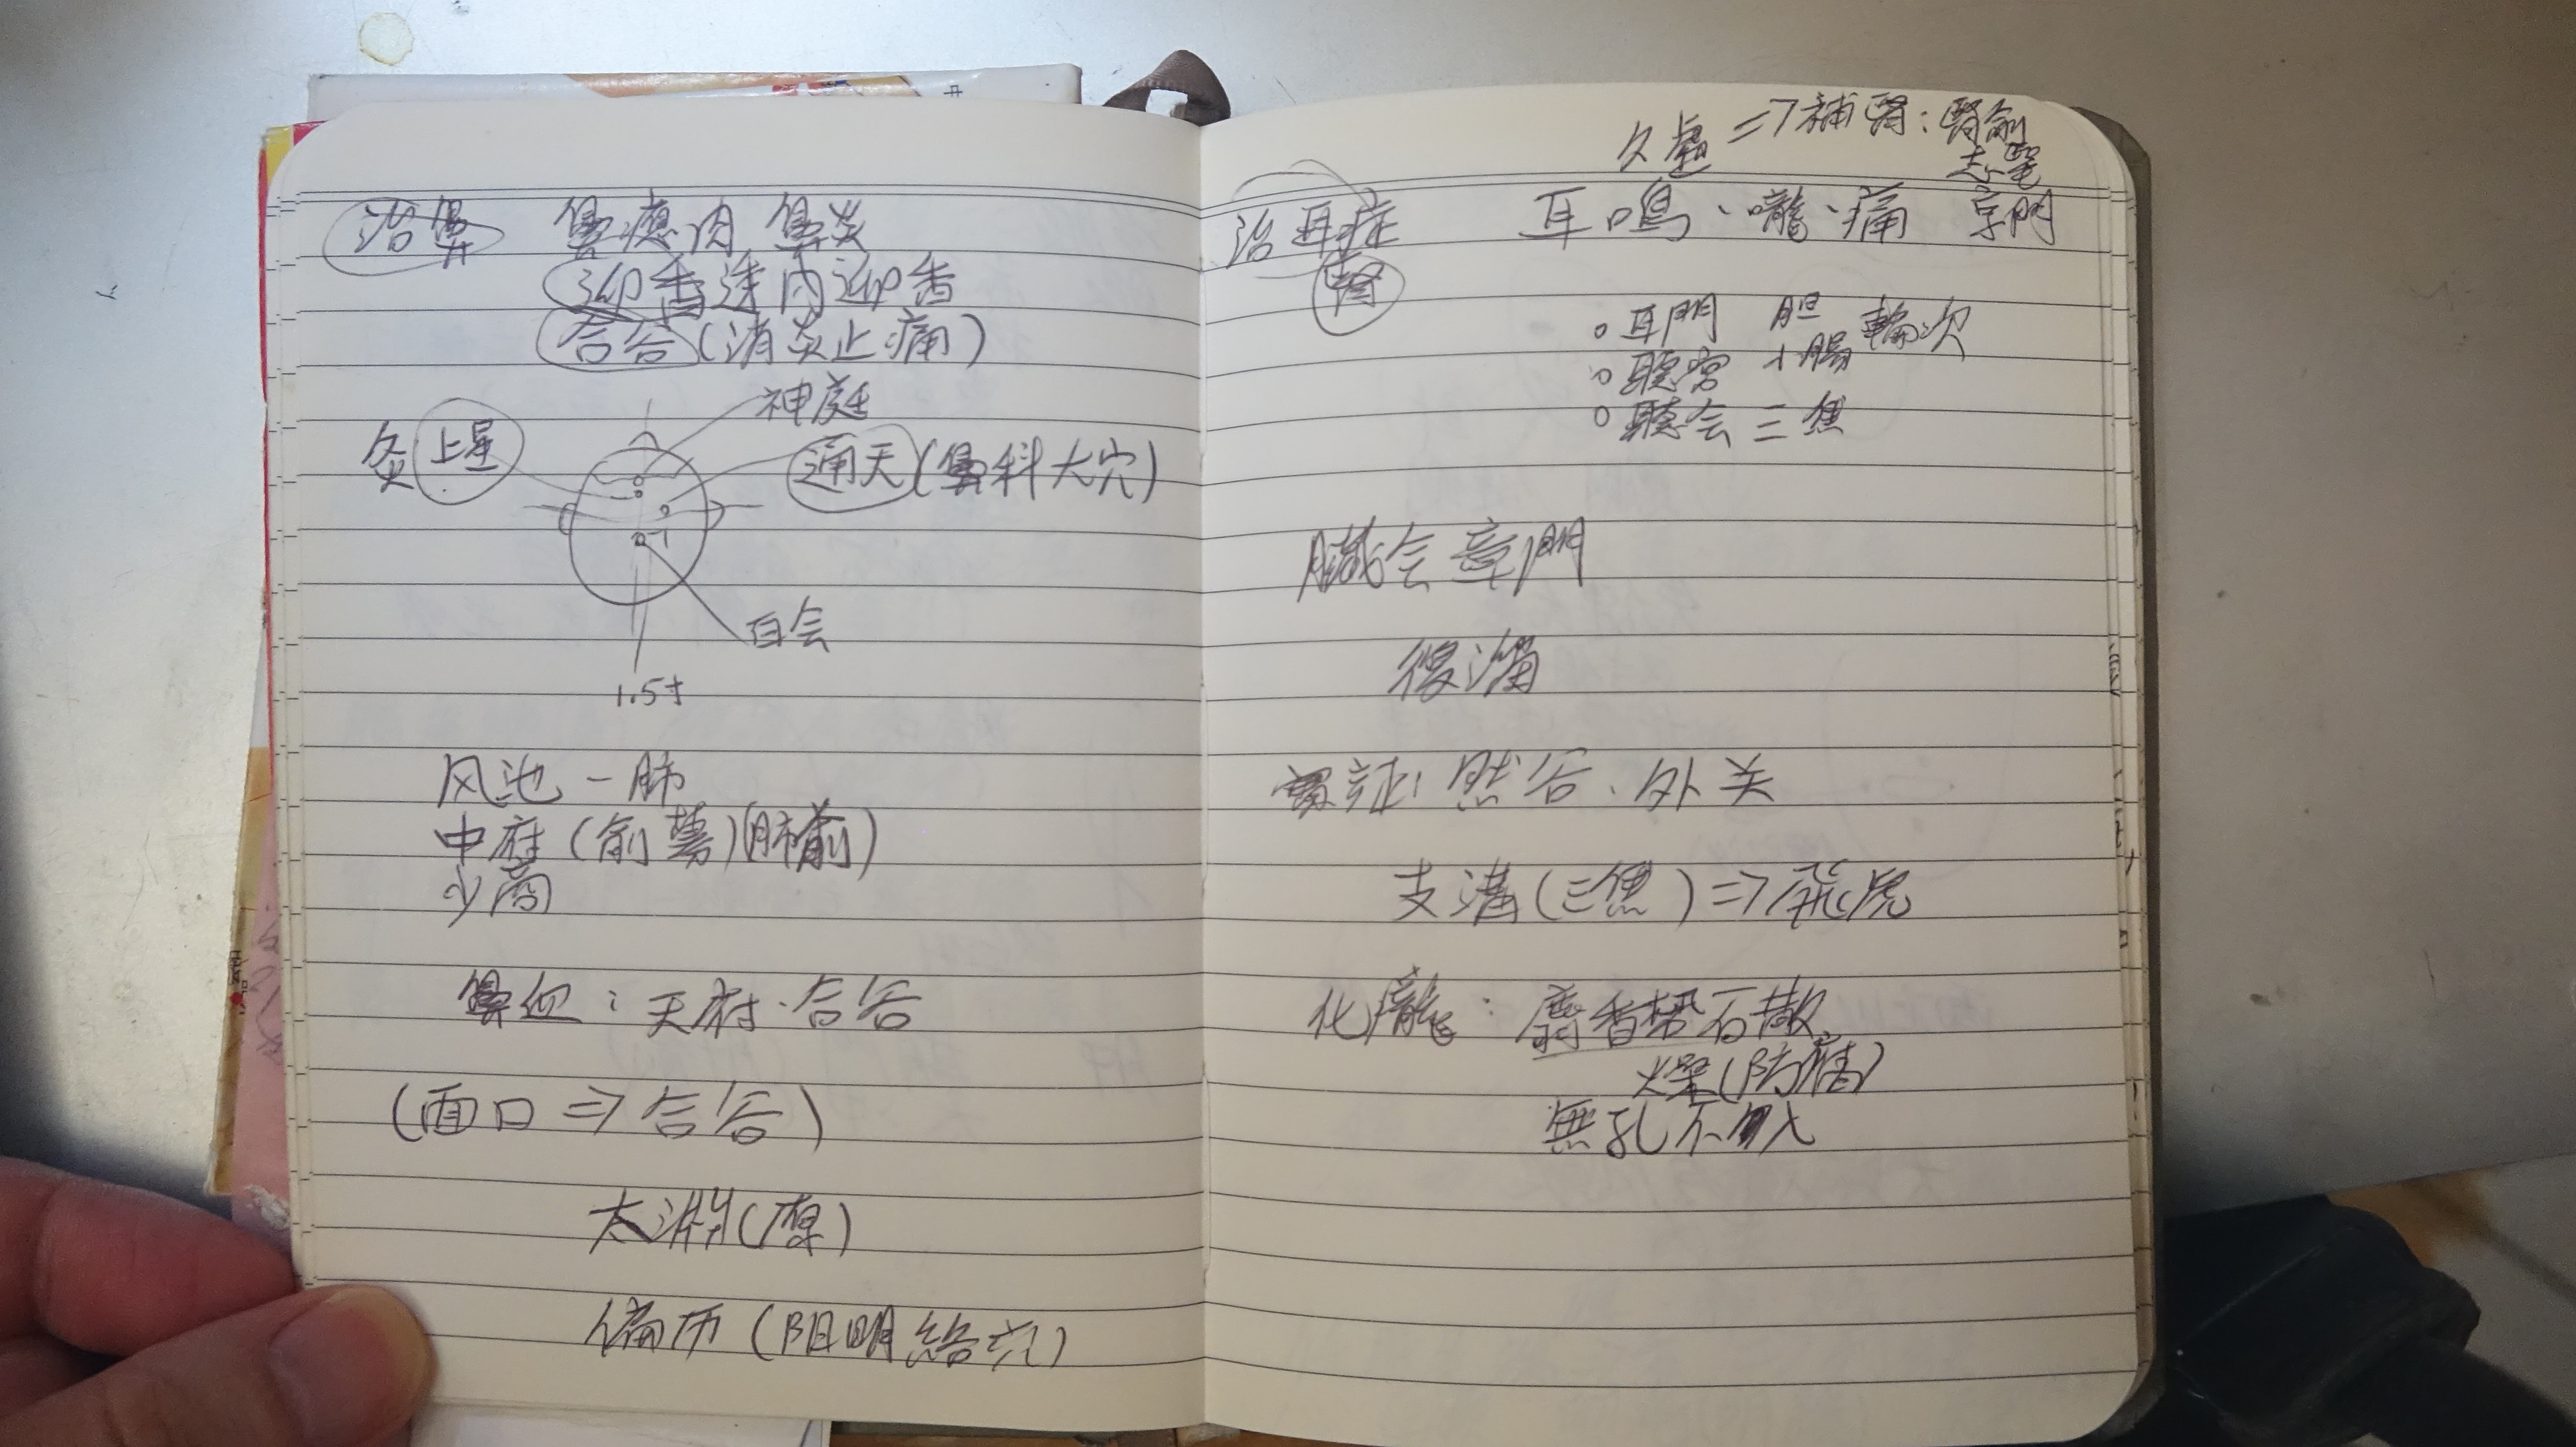 治鼻 鼻瘜肉 鼻炎
迎香透内迎香
合谷(消炎止痛)
神庭
灸上星
通天(鼻科大穴)
百会
1.5寸
风池－肺
中府(俞募)(肺俞)
少商
鼻血：天府、合谷
(面口⇒合谷)
太淵(原)
偏历(阳明絡穴)
久虛⇒補腎：腎俞
志室
京門
治耳症 耳鳴、嚨、痛
腎
○耳門 胆
○聽宮 小腸 輪次
○聽会 三焦
臟会章門
復溜
實証：然谷、外关
支溝(三焦)⇒飛虎
化膿：麝香礬石散
燥(防腐)
無孔不入